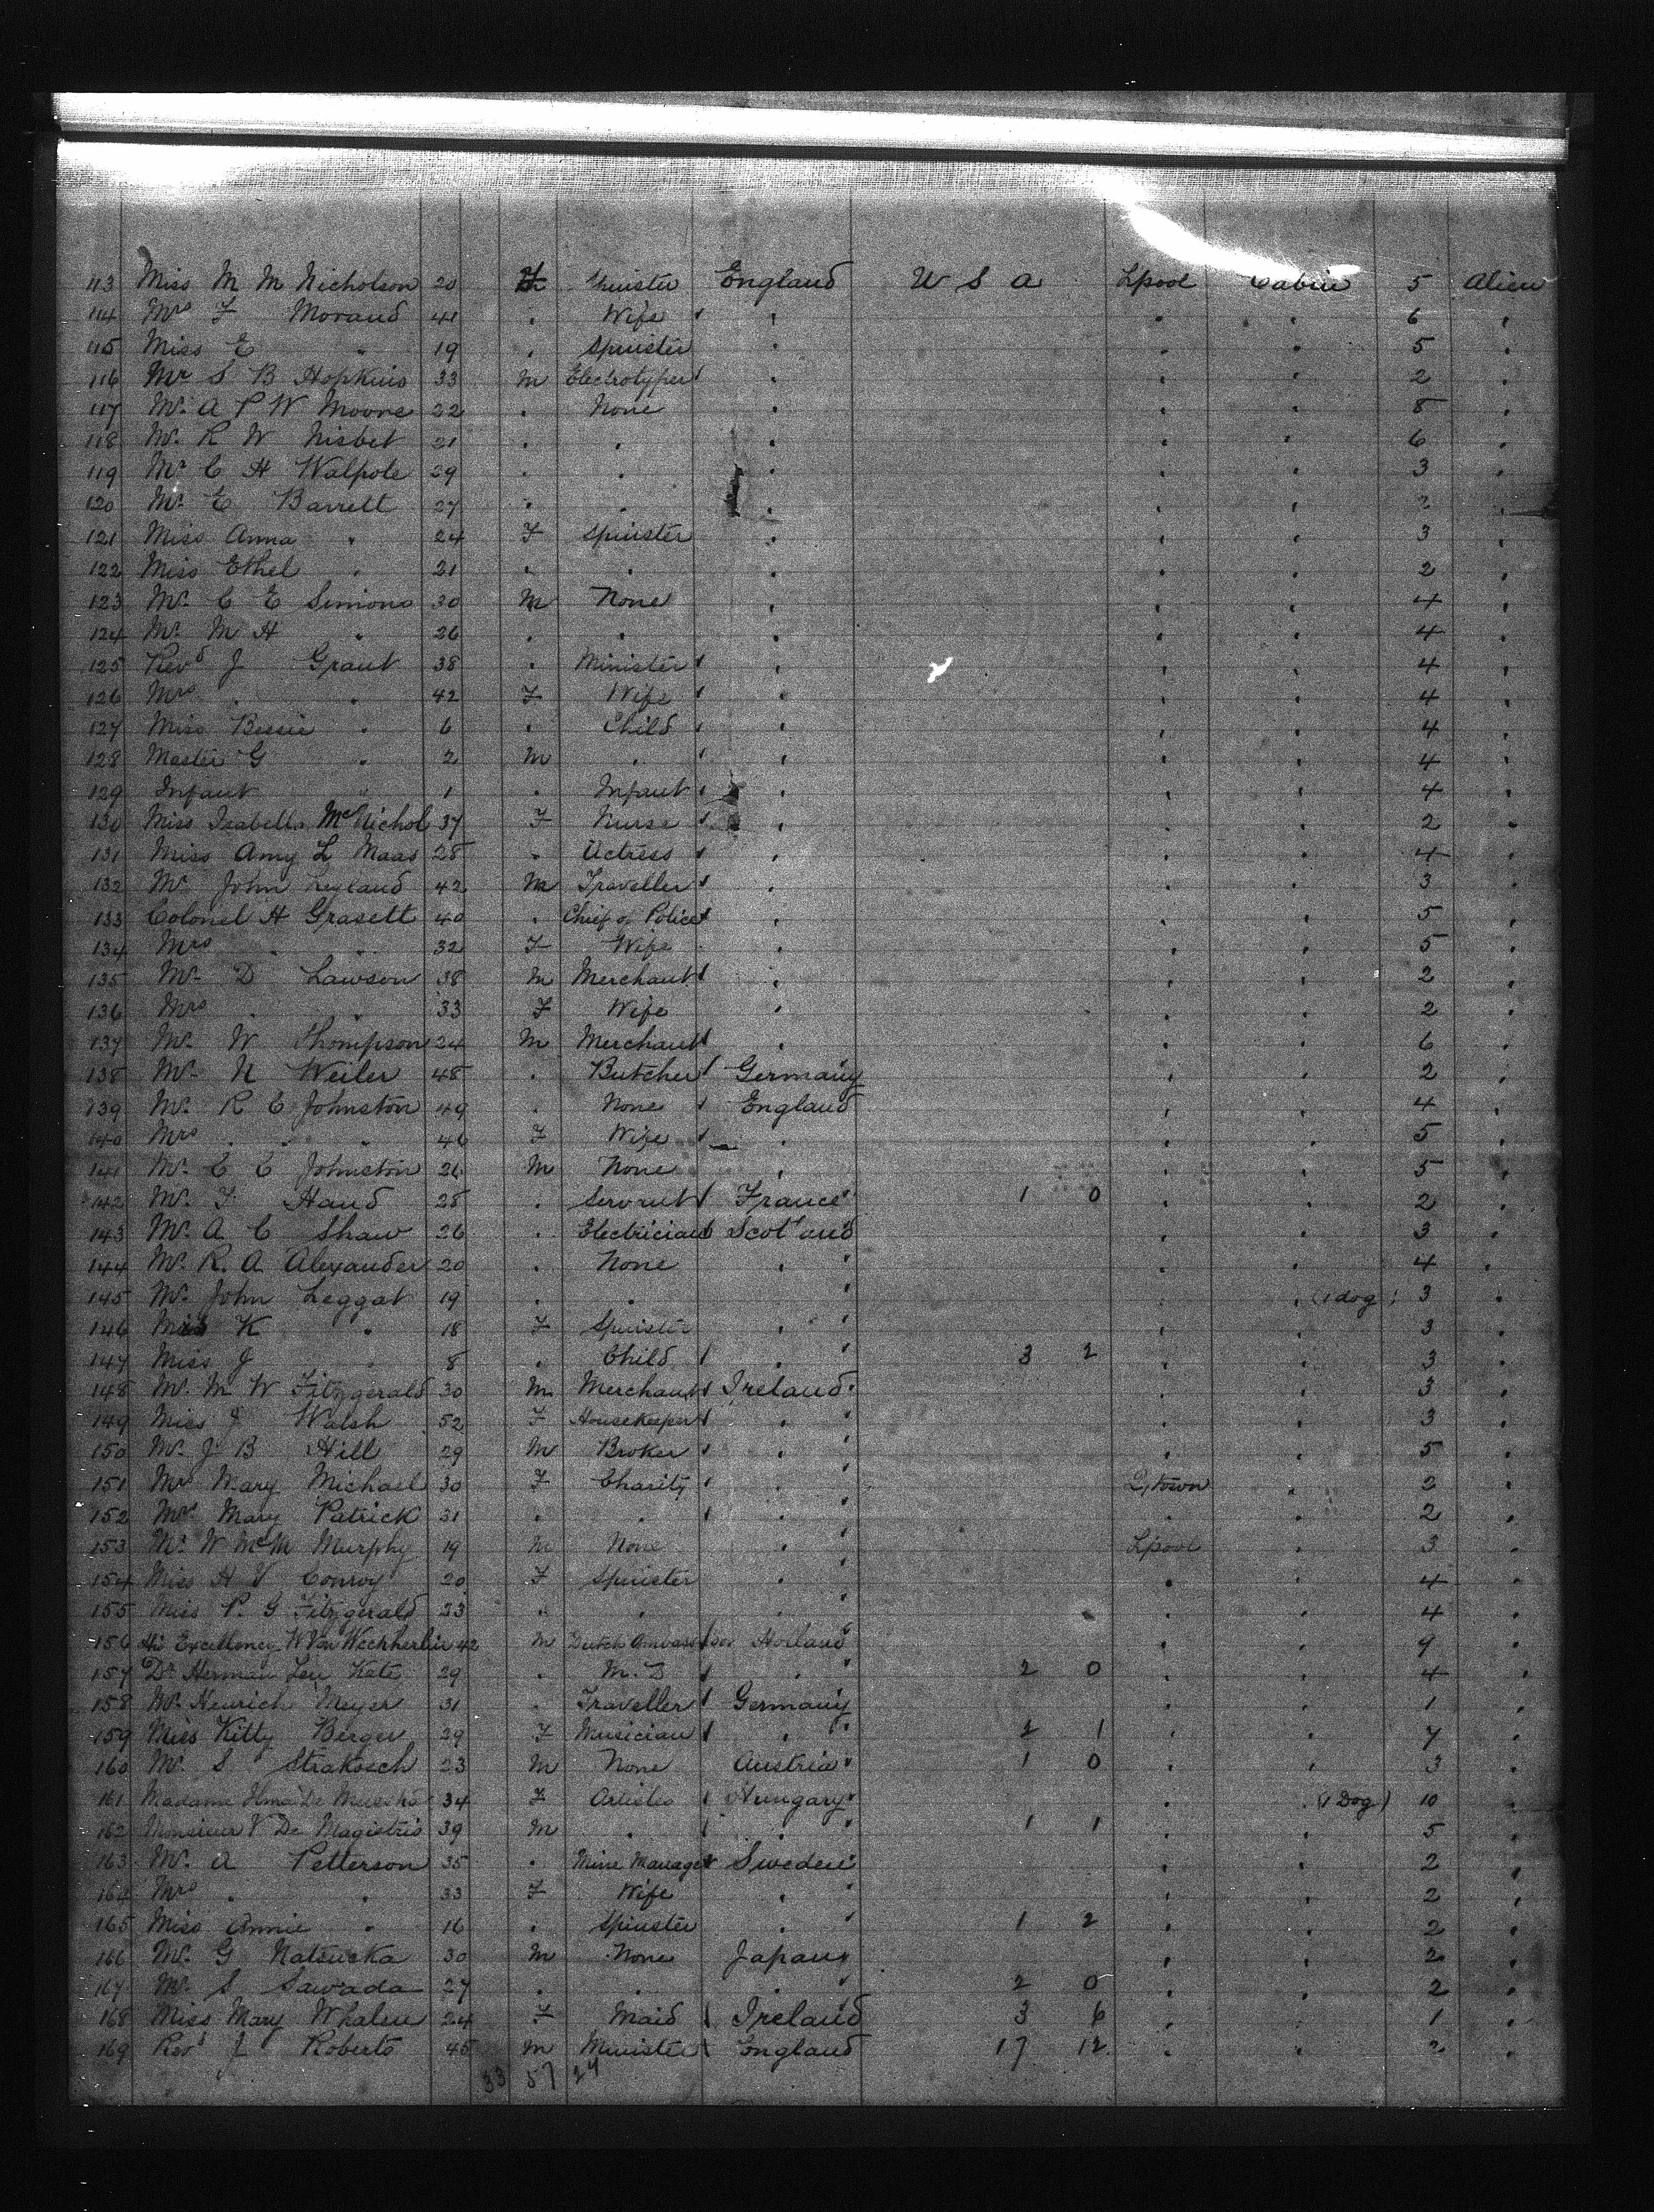 113 Miss M M Nicholson 20 F Spinster England U S A Lpool Cabin 5 Alien
114 Mrs F Morand 41 " Wife " " " 6 "
115 Miss E " 19 " Spinster " " " 5 "
116 Mr S B Hopkins 33 M Electrotyper " " " 2 "
117 Mr A P W Moore 22 " None " " " 8 "
118 Mr R W Nisbet 21 " " " " " 6 "
119 Mr C H Walpole 29 " " " " " 3 "
120 Mr E Barrett 27 " " " " " 2 "
121 Miss Anna " 24 F Spinster " " " 3 "
122 Miss Ethel " 21 " " " " " 2 "
123 Mr C E Simions 30 M None " " " 4 "
124 Mr M H " 26 " " " " " 4 "
125 Revd J Grant 38 " Minister " " " 4 "
126 Mrs " " 42 F Wife " " " 4 "
127 Miss Bessie " 6 " Child " " " 4 "
128 Master G " 2 M " " " " 4 "
129 Infant " 1 " Infant " " " 4 "
130 Miss Isabella McNichol 37 F Nurse " " " 2 "
131 Miss Amy L Maas 28 " Actress " " " 4 "
132 Mr John Leyland 42 M Traveller " " " 3 "
133 Colonel H Grasett 40 " Chief of Police " " " 5 "
134 Mrs " " 32 F Wife " " " 5 "
135 Mr D Lawson 38 M Merchant " " " 2 "
136 Mrs " " 33 F Wife " " " 2 "
137 Mr W Thompson 24 M Merchant " " " 6 "
138 Mr N Weiler 48 " Butcher Germany " " 2 "
139 Mr R C Johnston 49 " None England " " 4 "
140 Mrs " " " 46 F Wife " " " 5 "
141 Mr C C Johnston 26 M None " " " 5 "
142 Mr F Hand 28 " Servant France 1 0 " " 2 "
143 Mr A C Shaw 26 " Electrician Scotland " " 3 "
144 Mr R. A. Alexander 20 " None " " " 4 "
145 Mr John Leggat 19 " " " " " (1 dog) 3 "
146 Miss K " 18 F Spinster " " " 3 "
147 Miss J " 8 " Child " 3 2 " " 3 "
148 Mr M W Fitzgerald 30 M Merchant Ireland " " 3 "
149 Miss J Walsh 52 F Housekeeper " " " 3 "
150 Mr J B Hill 29 M Broker " " " 5 "
151 Mrs Mary Michael 30 F Charity " Q'town " 2 "
152 Mrs Mary Patrick 31 " " " " " 2 "
153 Mr W McM Murphy 19 M None " Lpool " 3 "
154 Miss H V Conroy 20 F Spinster " " " 4 "
155 Miss P. G Fitzgerald 23 " " " " " 4 "
156 His Excellency W Von Weckherlin 42 M Dutch Ambassador Holland " " 9 "
157 Dr Herman Ten Kate 29 " M. D " 2 0 " " 4 "
158 Mr Heinrich Meyer 31 " Traveller Germany " " 1 "
159 Miss Kitty Berger 29 F Musician " 2 1 " " 7 "
160 Mr S Strakosch 23 M None Austria 1 0 " " 3 "
161 Madame Ilma De Murska 34 F Artiste Hungary " " (1 Dog) 10 "
162 Monsieur V De Magistris 39 M " " 1 1 " " 5 "
163 Mr A Petterson 35 " Mine Manager Sweden " " 2 "
164 Mrs " " 33 F Wife " " " 2 "
165 Miss Annie " 16 " Spinster " 1 2 " " 2 "
166 Mr G Natsucka 30 M None Japan " " 2 "
167 Mr S Sawada 27 " " " 2 0 " " 2 "
168 Miss Mary Whalen 24 F Maid Ireland 3 6 " " 1 "
169 Revd J Roberts 45 M Minister England 17 12 " " 2 "
33 57 24